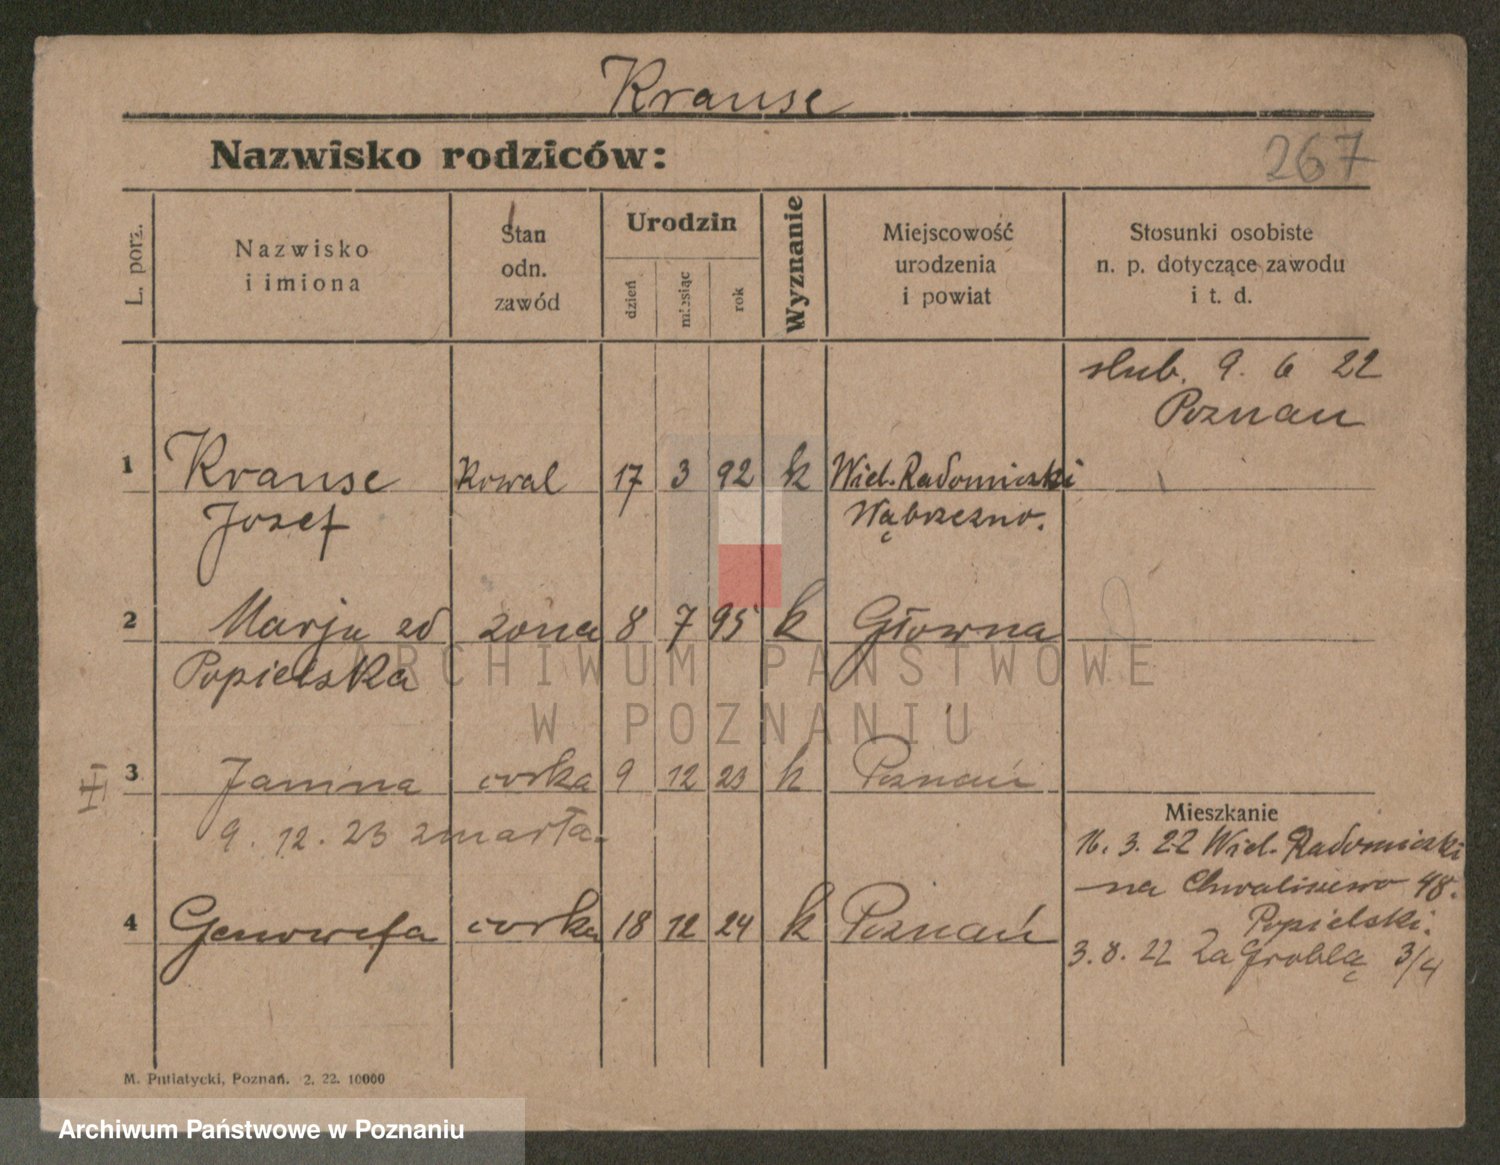 Krause
Nazwisko rodziców:
267
L. porz.
Nazwisko
i imiona
Stan
odn.
zawód
Urodzin
dzień
miesiąc
rok
Wyznanie
Miejscowość
urodzenia
i powiat
Stosunki osobiste
n. p. dotyczące zawodu
i t. d.
slub. 9. 6 22
Poznan
1 Krause Kowal 17 3 92 k Wiel. Radomiczki
Jozef Wąbrzezno.
2 Marja zd zona 8 7 95 k Głowna
Popielska
3 Janina corka 9 12 23 k Poznań
9. 12. 23 zmarła.
Mieszkanie
16. 3. 22 Wiel. Radomiczki
na Chwaliszewo 48.
Popielski.
4 Genowefa corka 18 12 24 k Poznań
3. 8. 22 Za Groblą 3/4
M. Putiatycki, Poznań. 2. 22. 10000
ARCHIWUM PAŃSTWOWE
W POZNANIU
Archiwum Państwowe w Poznaniu